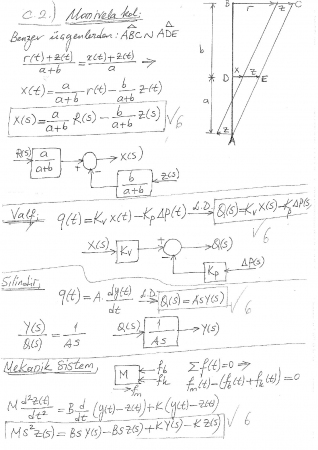 C.2.) Manivela kol:
Benzer üçgenlerden: ABC ~ ADE
(r(t)+z(t))/(a+b) = (x(t)+z(t))/a ⇒
x(t) = a/(a+b) r(t) - b/(a+b) z(t)
X(s) = a/(a+b) R(s) - b/(a+b) Z(s) √6
R(s) a/(a+b) + - X(s)
b/(a+b) Z(s)
B r z C
b
D x z E
a
z A
Valf: q(t) = Kv x(t) - Kp ΔP(t) L.D. Q(s) = Kv X(s) - Kp ΔP(s) √6
X(s) Kv + - Q(s)
Kp ΔP(s)
Silindir: q(t) = A. dy(t)/dt L.D. Q(s) = A s Y(s) √6
Y(s)/Q(s) = 1/(A s) Q(s) 1/(A s) Y(s)
Mekanik Sistem, M fb fk fm Σf(t)=0 ⇒
fm(t) - (fb(t)+fk(t)) = 0
M d²z(t)/dt² = B d/dt (y(t)-z(t)) + K(y(t)-z(t))
Ms²Z(s) = BsY(s) - BsZ(s) + KY(s) - KZ(s) √6